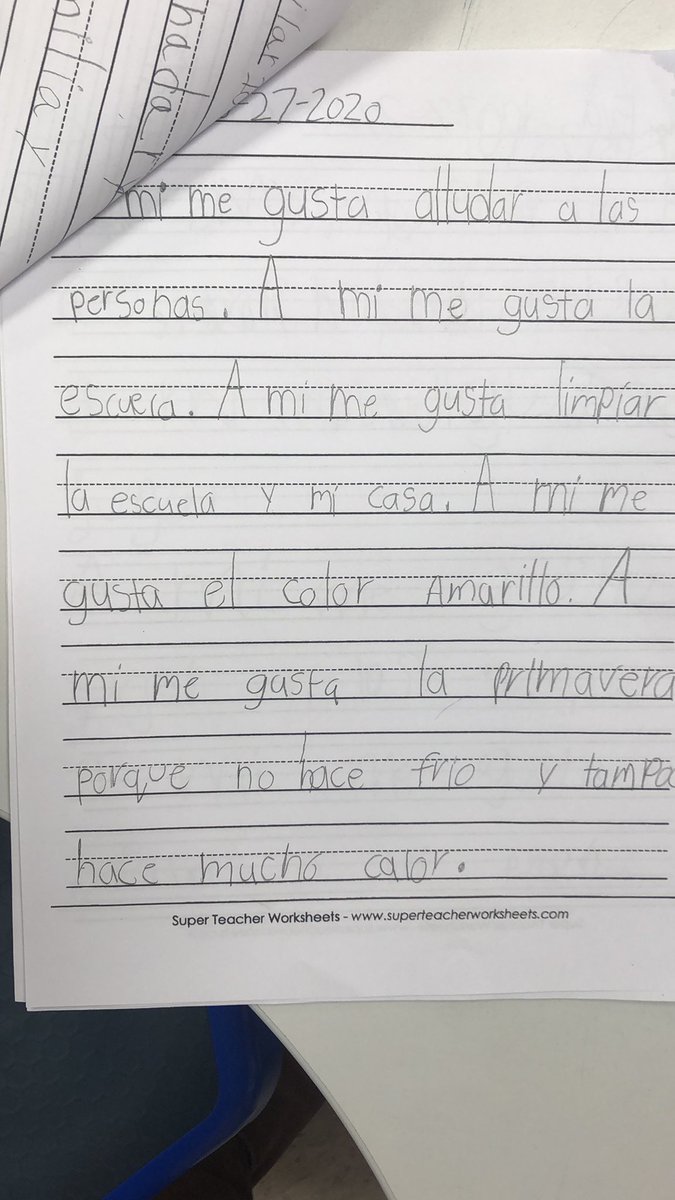 -27-2020
mi me gusta alludar a las
personas. A mi me gusta la
escuela. A mi me gusta limpiar
la escuela y mi casa. A mi me
gusta el color Amarillo. A
mi me gusta la primavera
porque no hace frio y
hace mucho calor.
Super Teacher Worksheets - www.superteacherworksheets.com